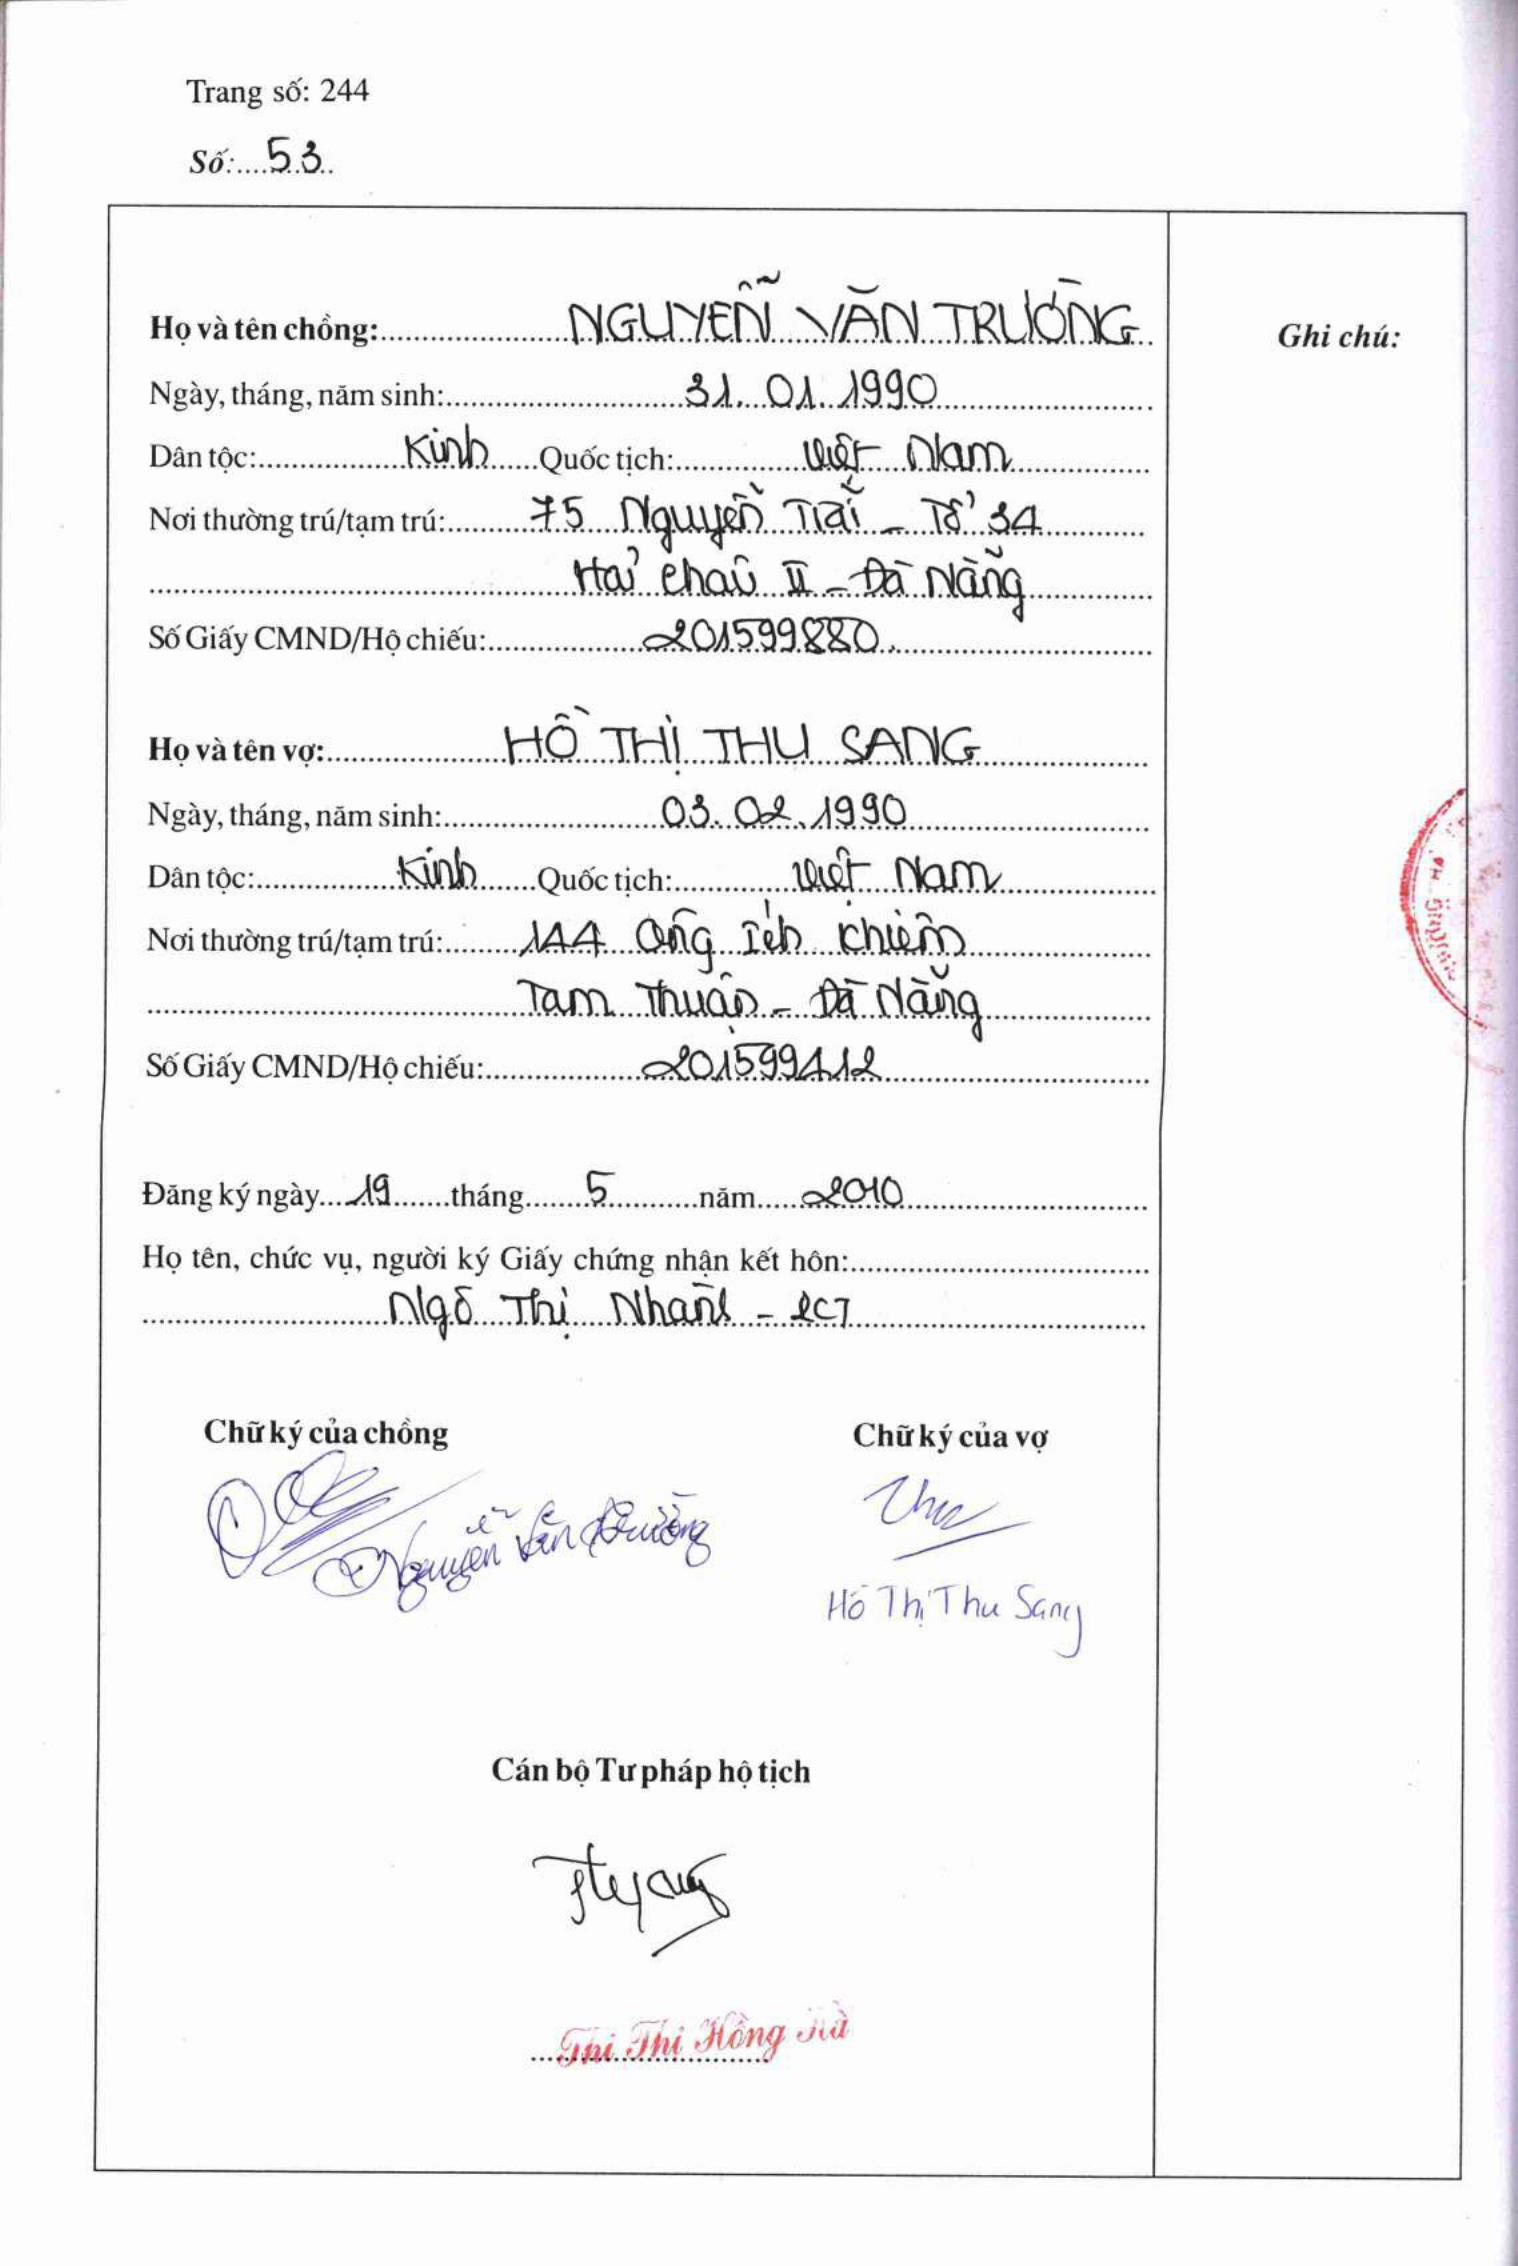 Trang số: 244
Số:....53..
Họ và tên chồng: NGUYỄN VĂN TRƯỜNG
Ghi chú:
Ngày, tháng, năm sinh: 31. 01. 1990
Dân tộc: Kinh Quốc tịch: Việt Nam
Nơi thường trú/tạm trú: 75 Nguyễn Trãi - Tổ 34
Hải Châu II - Đà Nẵng
Số Giấy CMND/Hộ chiếu: 201599880.
Họ và tên vợ: HỒ THỊ THU SANG
Ngày, tháng, năm sinh: 03. 02. 1990
Dân tộc: Kinh Quốc tịch: Việt Nam
Nơi thường trú/tạm trú: 144 Ông Ích Khiêm
Tam Thuận - Đà Nẵng
Số Giấy CMND/Hộ chiếu: 201599412
Đăng ký ngày 19 tháng 5 năm 2010
Họ tên, chức vụ, người ký Giấy chứng nhận kết hôn:
Ngô Thị Nhành - PCT
Chữ ký của chồng
Chữ ký của vợ
Nguyễn Văn Trường
Thu
Hồ Thị Thu Sang
Cán bộ Tư pháp hộ tịch
Thi Thị Hồng Hà